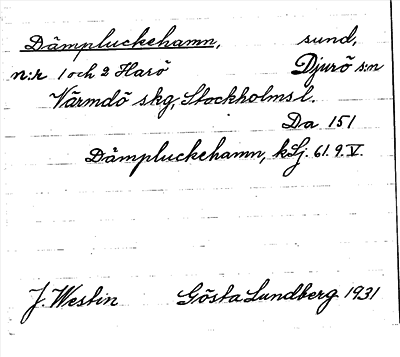 Dämpluckehamn, sund,
n:r 1 och 2 Harö Djurö s:n
Värmdö skg, Stockholms l.
Da 151
Dämpluckehamn, kSj. 61. 9. V.
J. Westin Gösta Lundberg 1931